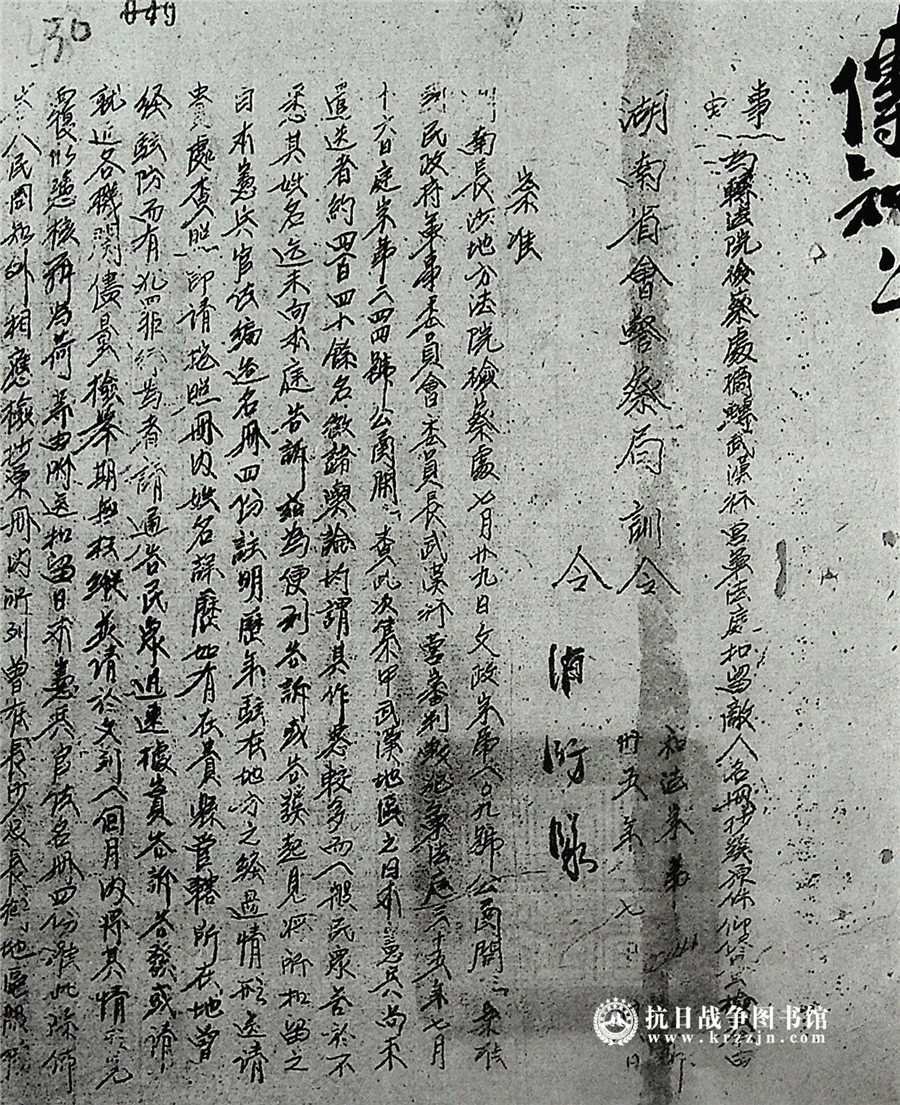 449
30
事
由
為轉法院檢察處摘轉武漢行營軍法處扣留敵人名冊抄發原件仰
湖南省會警察局訓令
法字第
卅五年七 日
令
案准
湖南長沙地方法院檢察處七月廿九日文政字第八〇九號公函開：案准
國民政府軍事委員會委員長武漢行營審判戰犯軍法庭三十五年七月
十六日庭字第二四四號公函開：查此次集中武漢地區之日本憲兵尚未
還送者約四百四十餘名徵諸輿論均謂其作惡較多而一般民衆苦於不
悉其姓名迄未向本庭告訴茲為便利告訴或告發起見將所扣留之
日本憲兵官佐編造名冊四份註明歷年駐在地方之經過情形送請
貴處查照即請按照冊內姓名詳歷如有在貴縣管轄所在地曾
經駐防而有犯罪行為者請通告民衆迅速據實告訴告發或請
就近各機關儘量檢舉期無枉縱並請於文到一個月內將其情形見
覆以憑核辦為荷等由附送扣留日本憲兵官佐名冊四份准此除佈
告人民周知外相應檢抄原冊內所列曾在長沙
抗日战争图书馆
www.krzzjn.com